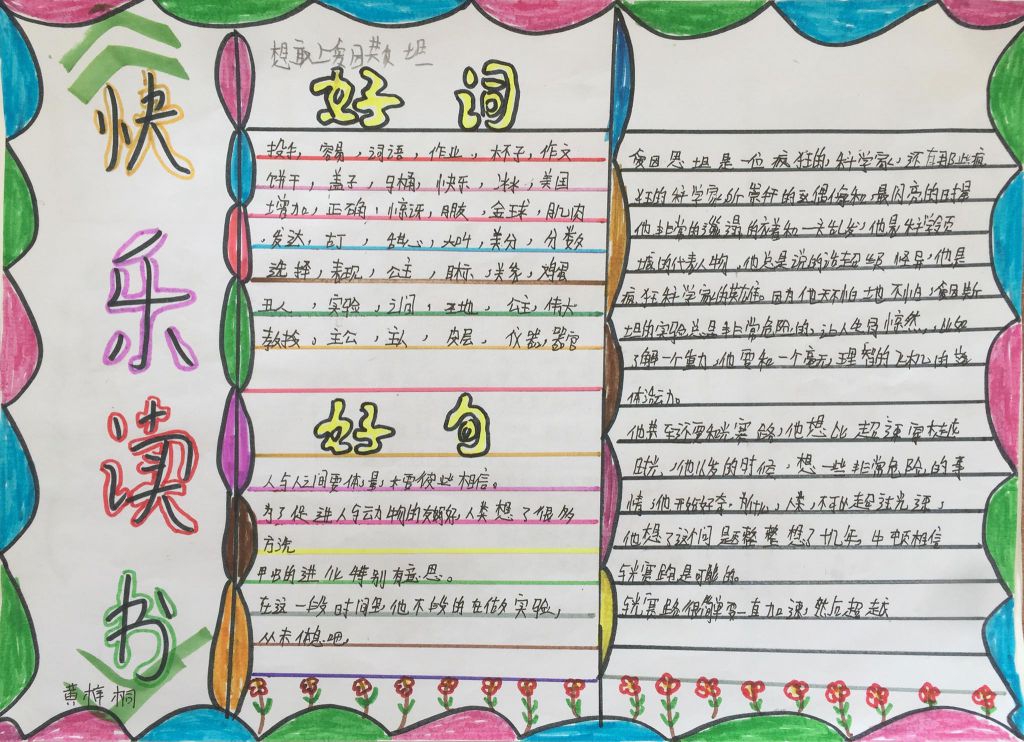 快乐读书
黄梓桐
想
好词
投手，容易，词语，作业，杯子，作文
饼干，盖子，马桶，快乐，冰水，美国
增加，正确，惊讶，朋友，金球，肌肉
发达，大叫，美分，分数
选择，表现，公主，目标，鸡蛋
丑人，实验，之间，圣地，公主，伟大
教授，主公，主人，仪器，器官
好句
人与人之间要体量，相信。
为了促进人与动物的友好，人类想了很多
方法
的进化特别有意思。
在这一段时间里他不段的在做实验，
从未休息吧，
爱因思坦是一位疯狂的科学家，还有那些疯
狂的科学家所崇拜的偶像和最闪亮的明星
他非常的邋遢的穿着和一头乱发，他是科学领
域的代表人物，他总是说的话超级怪异，他是
疯狂科学家的英雄。因为他天不怕土地不怕，爱因斯
坦的实验总是非常危险的，让人生得惊然，从如
了解一个重力，他要和一个毫无理智的飞机的整
体活动。
他甚至还要和光赛跑，他想比超速需大越
时光，他从发的时候，想一些非常危险的事
情，他开始好奇，为什么，人类，不可以超过光速，
他想了这个问题整整想了十几年，牛顿相信
与光赛跑是可能的。
与光赛跑很简单要一直加速，然后超越